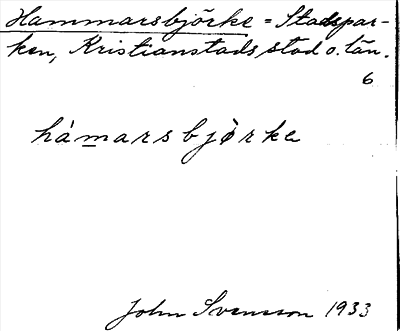 Hammarsbjörke = Stadspar-
ken, Kristianstads stad o. län.
6
hámarsbjörke
John Svensson 1933